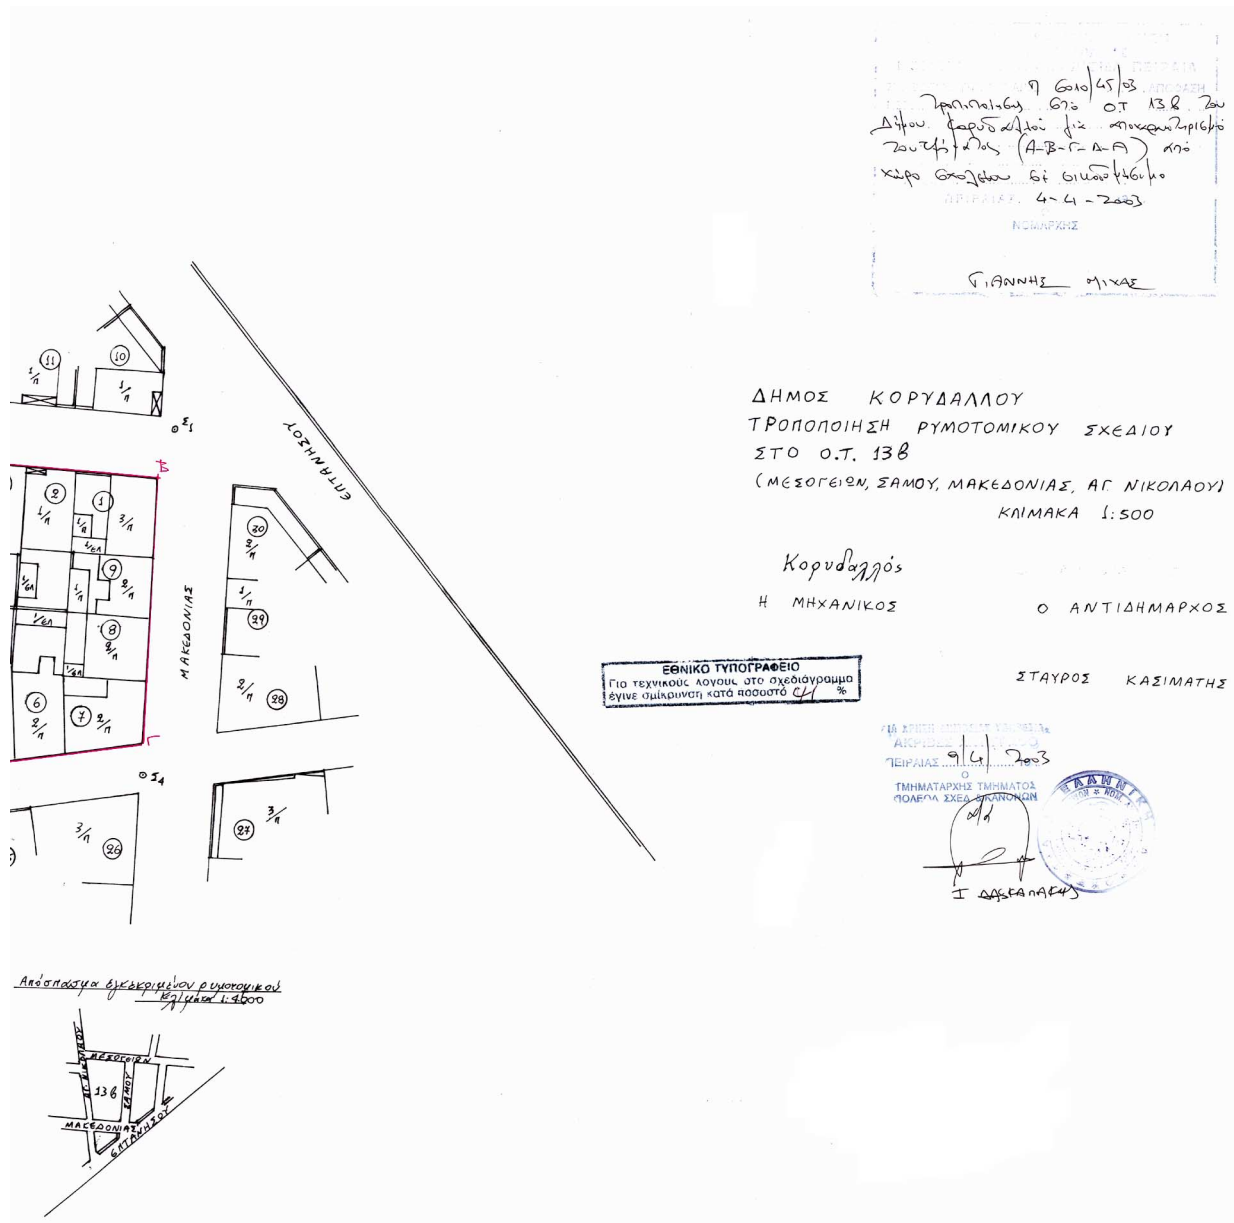 Π 6010/45/03
Τροποποίησις στο Ο.Τ 13β του
Δήμου Κορυδαλλού για
(Α-Β-Γ-Δ-Α) από
χώρο σχολείου σε οικοδομήσιμο
4-4-2003
ΝΟΜΑΡΧΗΣ
ΓΙΑΝΝΗΣ ΜΙΧΑΣ
ΔΗΜΟΣ ΚΟΡΥΔΑΛΛΟΥ
ΤΡΟΠΟΠΟΙΗΣΗ ΡΥΜΟΤΟΜΙΚΟΥ ΣΧΕΔΙΟΥ
ΣΤΟ Ο.Τ. 13β
(ΜΕΣΟΓΕΙΩΝ, ΣΑΜΟΥ, ΜΑΚΕΔΟΝΙΑΣ, ΑΓ. ΝΙΚΟΛΑΟΥ)
ΚΛΙΜΑΚΑ 1:500
Κορυδαλλός
Η ΜΗΧΑΝΙΚΟΣ
Ο ΑΝΤΙΔΗΜΑΡΧΟΣ
ΣΤΑΥΡΟΣ ΚΑΣΙΜΑΤΗΣ
ΕΘΝΙΚΟ ΤΥΠΟΓΡΑΦΕΙΟ
Για τεχνικούς λόγους στο σχεδιάγραμμα
έγινε σμίκρυνση κατά ποσοστό %
ΠΕΙΡΑΙΑΣ 9/4/2003
Ο
ΤΜΗΜΑΤΑΡΧΗΣ ΤΜΗΜΑΤΟΣ
ΠΟΛΕΟΔ ΣΧΕΔ & ΚΑΝΟΝΩΝ
Ι ΔΑΣΚΑΛΑΚΗΣ
ΕΛΛΗΝΙΚΗ
11
1/π
10
1/π
Σ1
ΕΠΤΑΝΗΣΟΥ
Β
2
1/π
1
1/π
3/π
1/ελ
9
1/ελ
1/π
2/π
1/ελ
8
2/π
1/ελ
6
2/π
7
2/π
Γ
ΜΑΚΕΔΟΝΙΑΣ
30
2/π
1/π
29
2/π
28
Σ4
3/π
26
27
3/π
Απόσπασμα εγκεκριμένου ρυμοτομικού
Κλίμακα 1:4000
ΑΓ. ΝΙΚΟΛΑΟΥ
ΜΕΣΟΓΕΙΩΝ
13β
ΣΑΜΟΥ
ΜΑΚΕΔΟΝΙΑΣ
ΕΠΤΑΝΗΣΟΥ